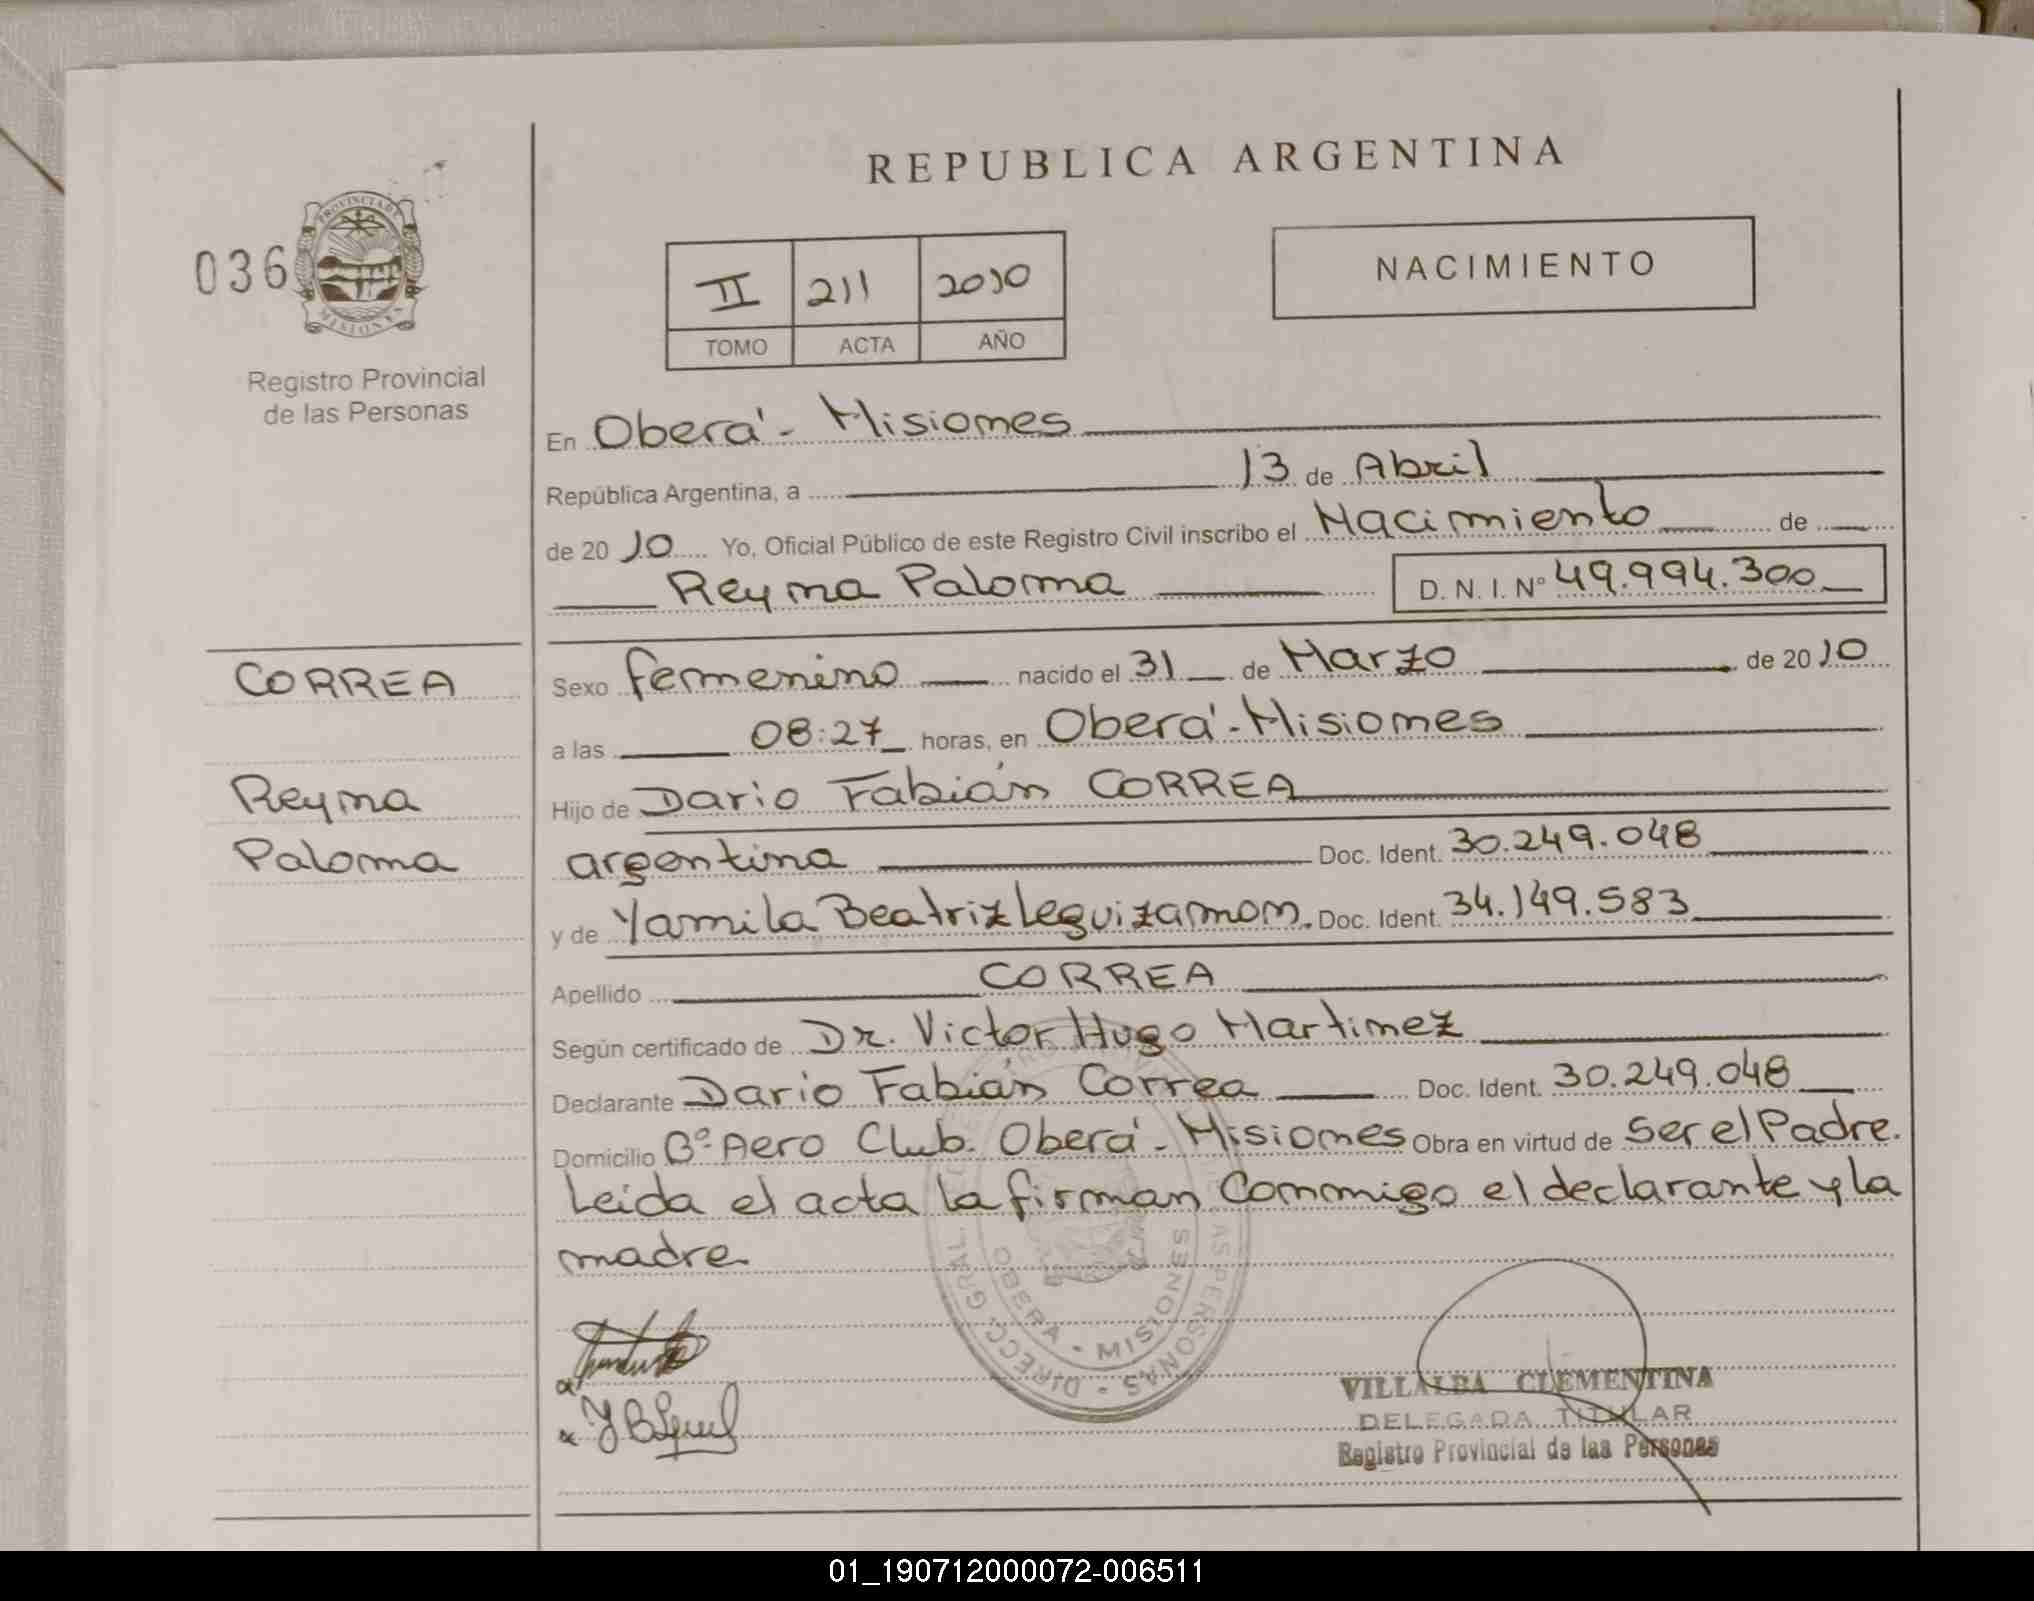 REPUBLICA ARGENTINA
036
PROVINCIA DE
MISIONES
Registro Provincial
de las Personas
II 211 2010
TOMO ACTA AÑO
NACIMIENTO
En Oberá - Misiones
República Argentina, a 13 de Abril
de 2010 Yo, Oficial Público de este Registro Civil inscribo el Nacimiento de
Reyna Paloma D. N. I. Nº 49.994.300
CORREA
Reyna
Paloma
Sexo femenino nacido el 31 de Marzo de 2010
a las 08:27 horas, en Oberá - Misiones
Hijo de Dario Fabián CORREA
argentina Doc. Ident. 30.249.048
y de Yamila Beatriz Leguizamon. Doc. Ident. 34.149.583
Apellido CORREA
Según certificado de Dr. Victor Hugo Martinez
Declarante Dario Fabián Correa Doc. Ident. 30.249.048
Domicilio Bº Aero Club. Oberá - Misiones Obra en virtud de Ser el Padre.
Leida el acta la firman Conmigo el declarante y la
madre
OBERA - MISIONES
VILLALBA CLEMENTINA
DELEGADA TITULAR
Registro Provincial de las Personas
01_190712000072-006511